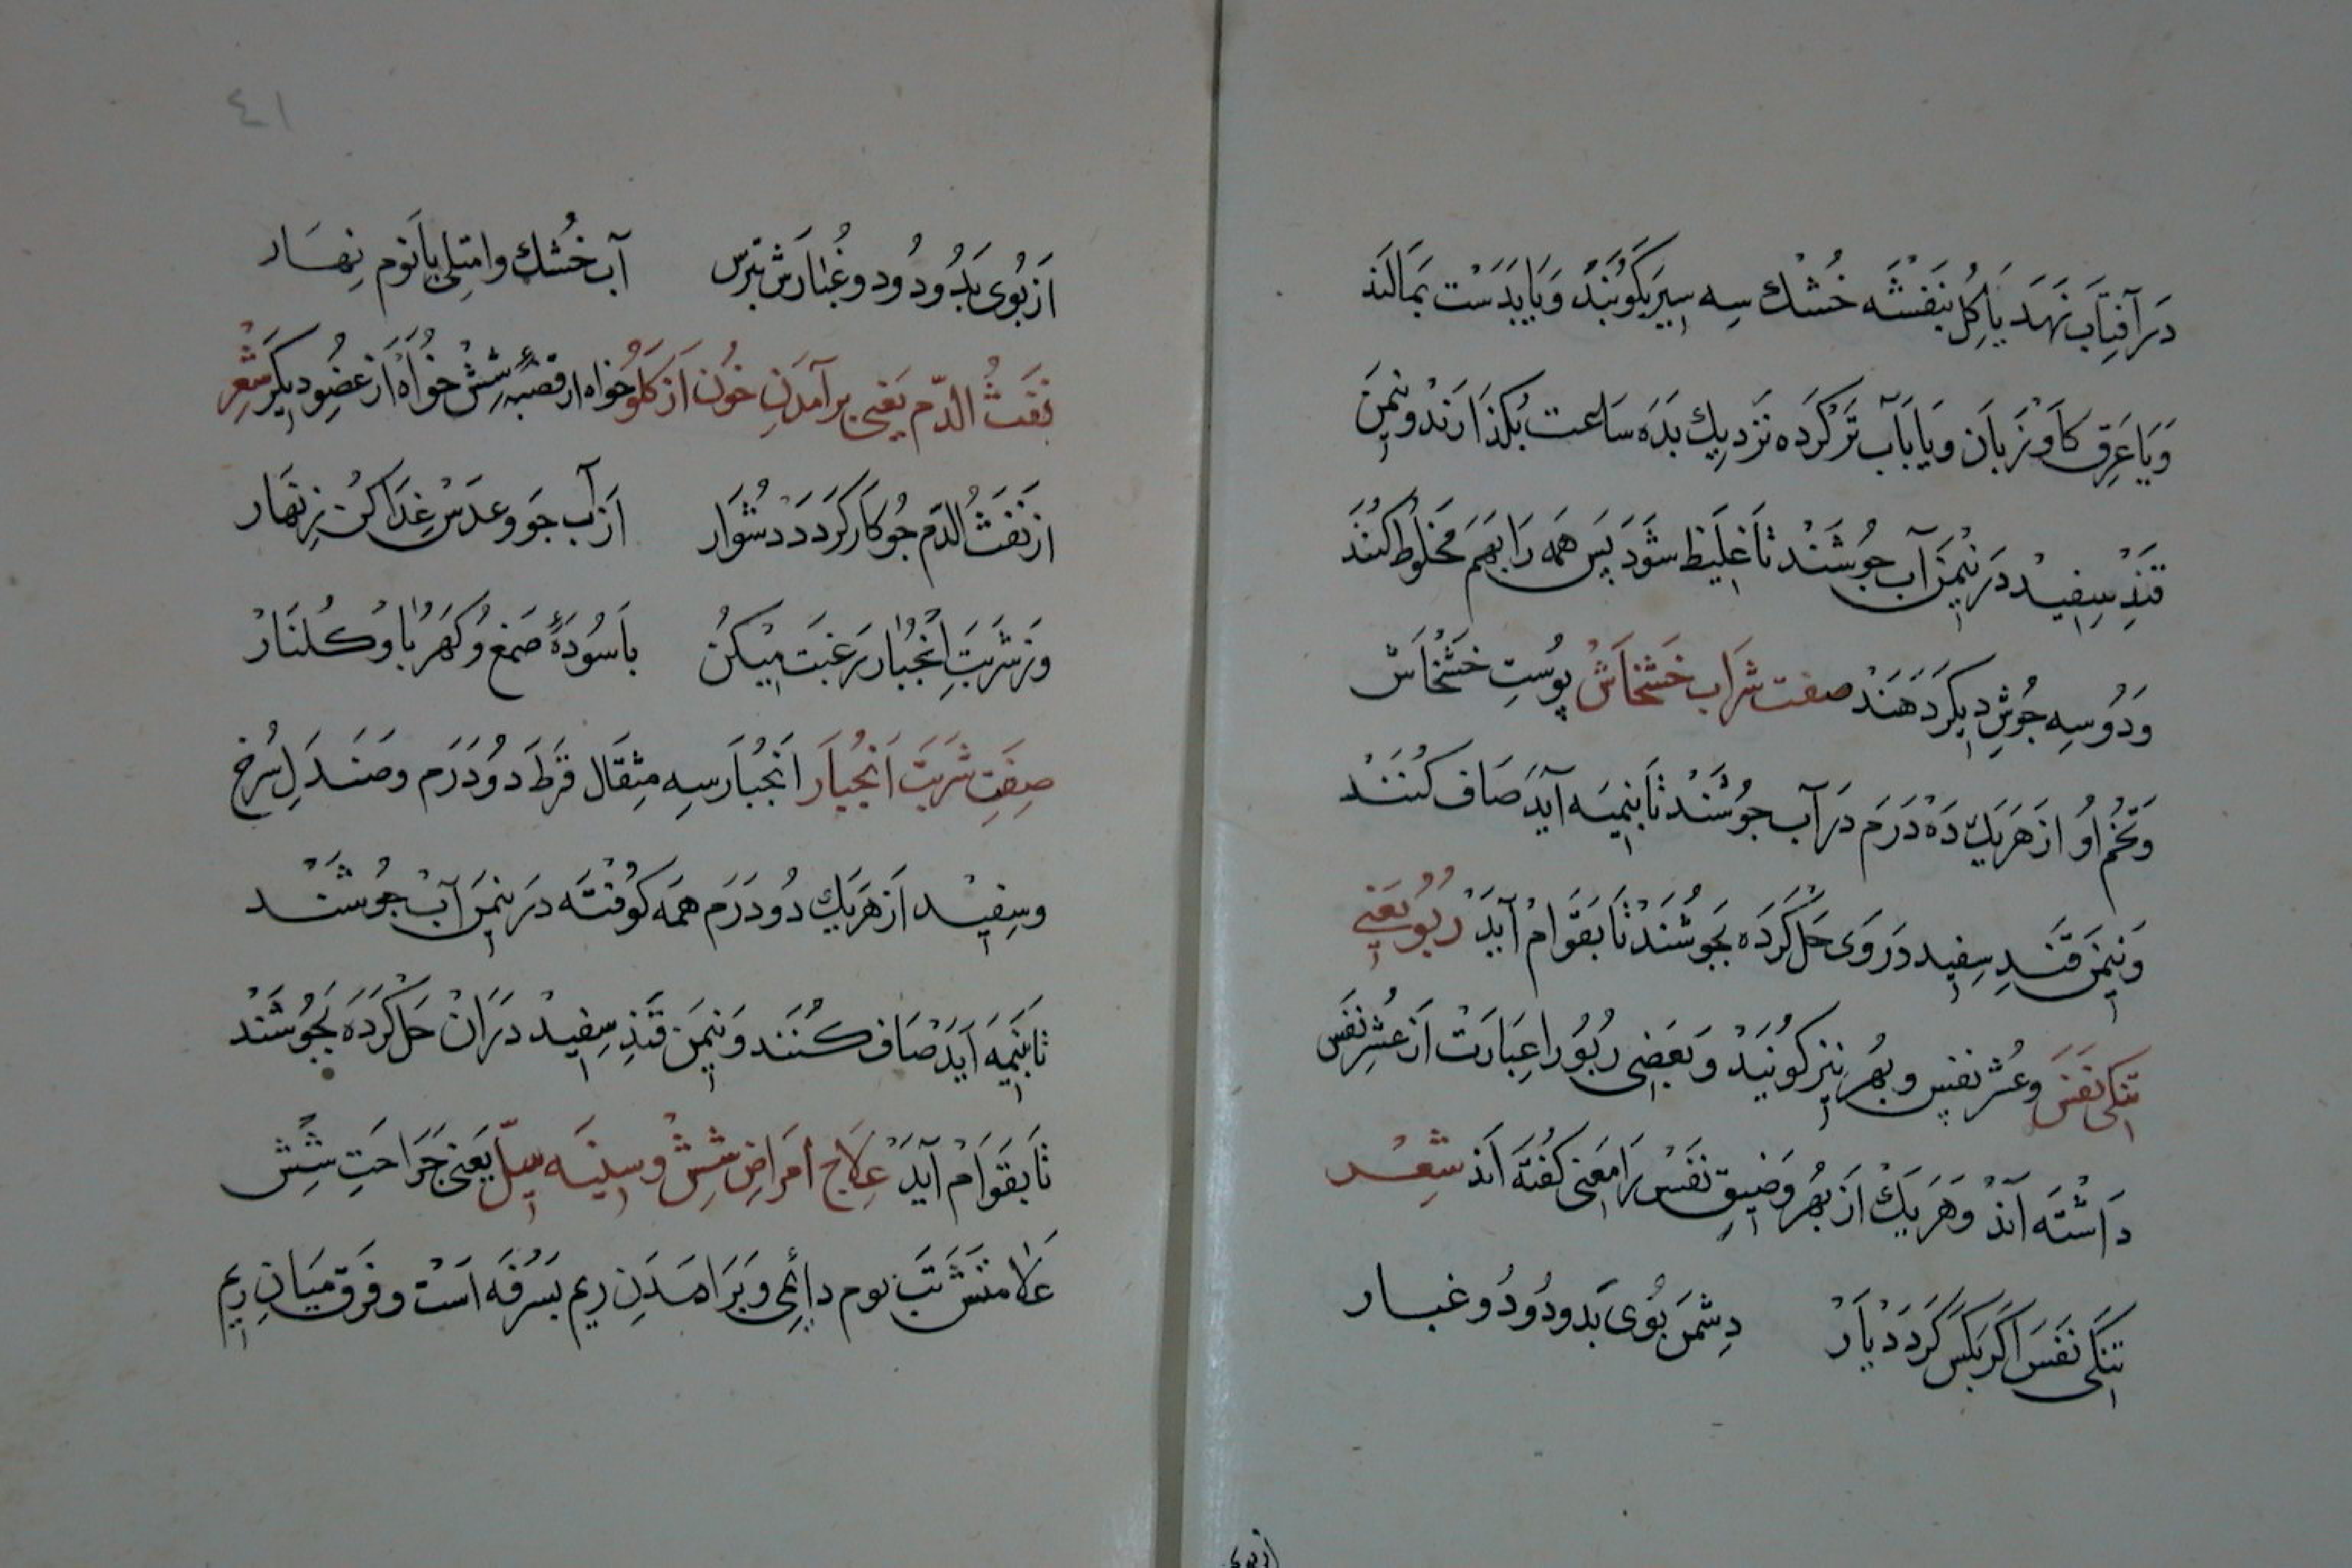 دَر آفتَاب نَهَد يَا كُلِ بَنَفْشَه خُشْك سِه سِير بَكُوبَندْ وَيَا بَدَسْت بمَالَند
وَيَا عَرَقِ كَاوْزَبَان وَيَا بَآب تَر كَرْدَه نَزْدِيك بَدَه سَاعت بُكذَارَنْد و نيمَن
قَنْدِ سِفِيدْ دَر نيْمَن آب جُوشَنْد تَا غَلِيظ شَوَد پَس هَمَه رَا بَهَم مَخلُوط كُنَنْد
وَدُوسِه جُوشِ دِيكَر دَهَنْد صفت شَرَاب خَشْخَاشْ پُوستِ خَشْخَاشْ
وَتُخْمُ اوُ از هَر يَك دَهْ دَرَم دَر آب جُوشَنْد تَا بنِيمَه آيَد صَاف كُنَنْد
وَنِيمَن قَنْدِ سِفِيد دَر وَى حَل كَرْدَه بجُوشَنْد تَا بَقَوَامْ آيَدْ رَبُو يَعْنِي
تَنكى نَفَسْ وعُسْر نفس و بُهْر نيز كُوينَدْ وَبَعْضِى رَبُو را عِبَارَتْ اَز عُسْرِ نَفَس
دَاشْتَه اَنْد وَهَر يَكْ اَز بُهْر وَضِيقِ نَفَسْ رَا مَعْنى كُفْتَه اَند شِعْر
تَنكَى نَفَسَ اكَر بَكَس كَرْدَدْ يَارْ دِشْمَن بُوىَ بَد و دُود و غبار
از بوى
٤١
اَز بُوى بَد و دُود و غُبَارَش بَتَرس آب خُشْك و امتلى يا نَوم نِهَار
نَفَثُ الدّم يَعْنِى بر آمَدَنِ خوُن اَز كَلوُ خواه از قصَبَهٔ شِشْ خُواهْ اَز عُضوِ ديكَر شِعْر
از نَفَثُ الدَم جُو كَار كَرْدَدْ دُشْوَار اَز آب جَو و عدَسْ غِذَا كُنْ زِنهَار
وَز شَربَتِ اَنجُبَار رَغبَت ميْكُنْ بَاسُودَهٔ صَمَغ وُ كَهْرُبَا وُ كُلنَارْ
صِفَتِ شَربَت اَنجُبَار اَنجُبَار سِه مِثقَال قَرَط دُو دَرَم وصَنْدَلِ سُرْخ
وسِفِيدْ اَز هَر يَك دُو دَرَم هَمَه كُوفْتَه دَر نيمَن آبْ جُوشَنْد
تَا بنِيمَه آيَدْ صَاف كُنَنْد وَنيمَن قَندِ سِفِيدْ دَرَانْ حَل كَرْدَه بجُوشَنْد
تَا بَقَوَامْ آيَدْ عِلَاجِ اَمرَاضِ شِشْ وسِينَه سِلّ يَعَنى جَرَاحَتِ شِشْ
عَلَامتَش تَب نوم دائِمى وَبَر آمَدَنِ ريم بَسُرفَه اَسْت و فَرَق مَيَانِ رِيم